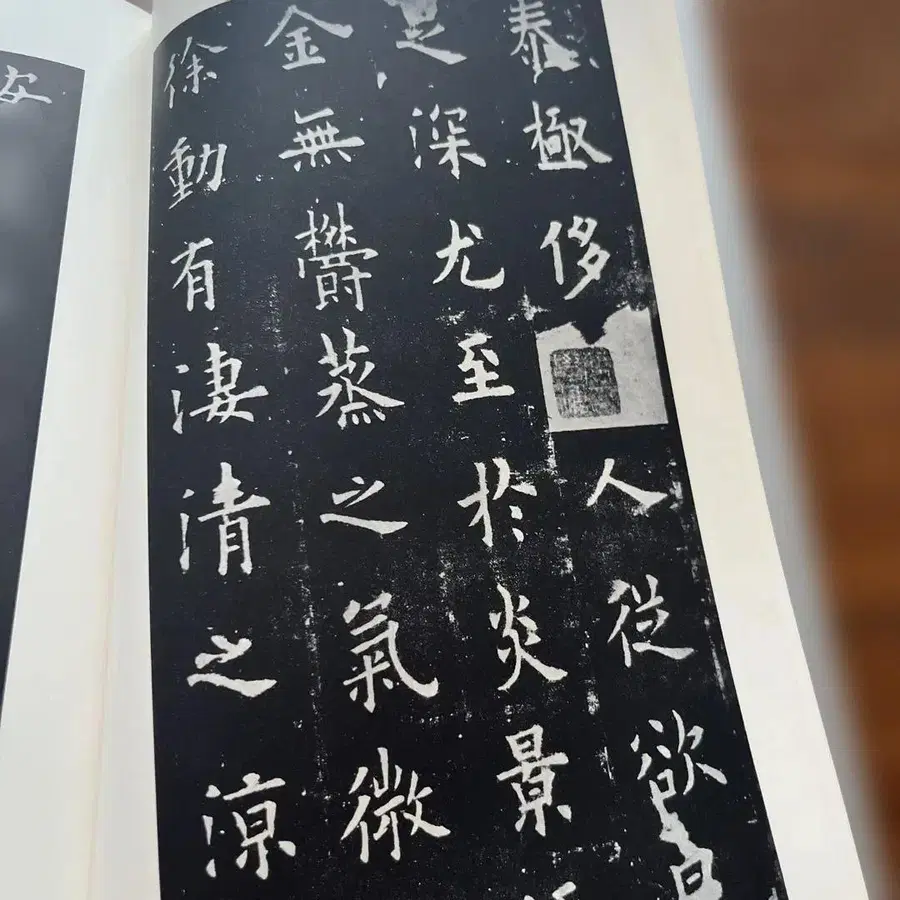 泰極侈人從欲良
足深尤至於炎景
金無鬱蒸之氣微
徐動有淒清之涼
安